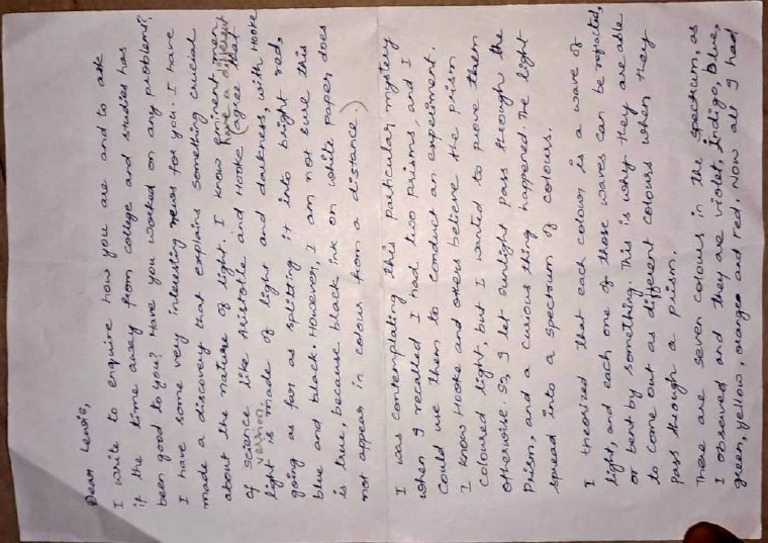 Dear Lewis,
I write to enquire how you are and to ask
if the time away from college and studies has
been good to you? Have you worked on any problems?
I have some very interesting news for you. I have
made a discovery that explains something crucial
about the nature of light. I know eminent men
have a different
of science like Aristotle and Hooke (agree that
version,
light is made of light and darkness, with Hooke
going as far as splitting it into bright red,
blue and black. However, I am not sure this
is true, because black ink on white paper does
not appear in colour from a distance)
I was contemplating this particular mystery
when I recalled I had two prisms, and I
could use them to conduct an experiment.
I know Hooke and others believe the prism
coloured light, but I wanted to prove them
otherwise. So, I let sunlight pass through the
prism, and a curious thing happened. The light
spread into a spectrum of colours.
I theorized that each colour is a wave of
light, and each one of those waves can be refracted,
or bent by something. This is why they are able
to come out as different colours when they
pass through a prism.
There are seven colours in the spectrum, as
I observed and they are violet, indigo, blue,
green, yellow, orange and red. Now all I had